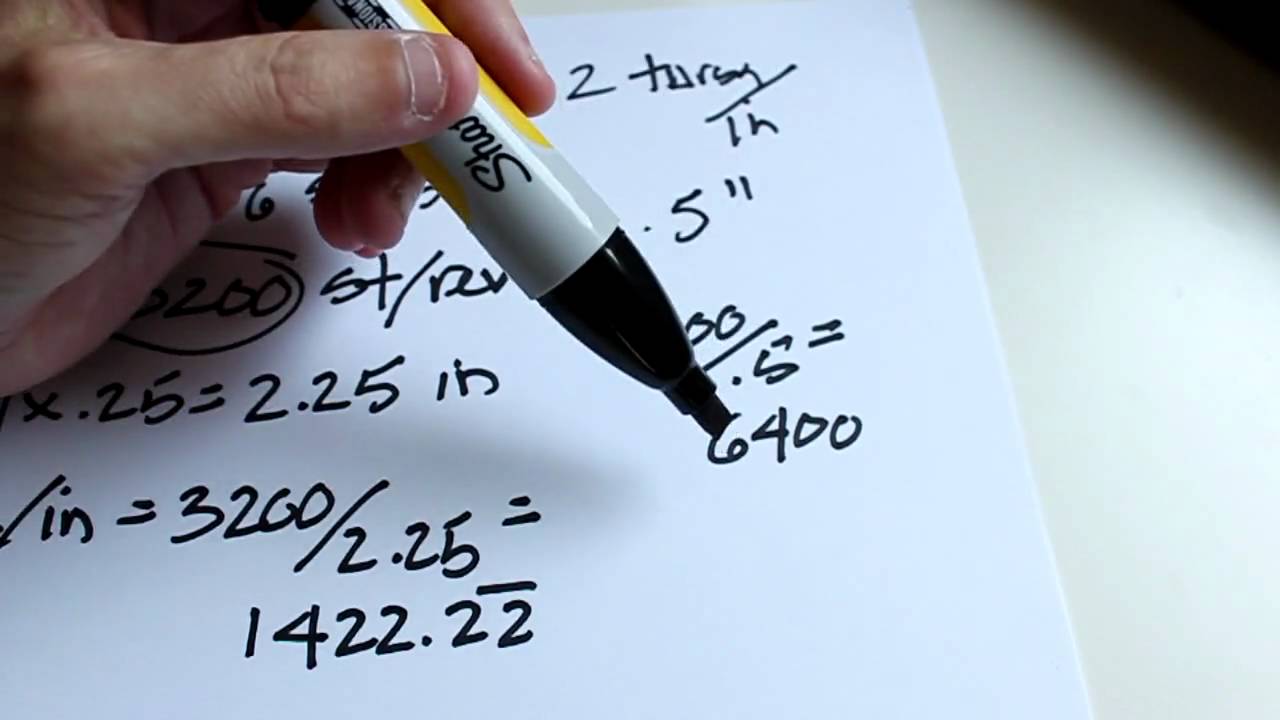 2 turns/in
6
.5"
3200 st/rev
x.25=2.25 in
00/.5=
6400
/in=3200/2.25=
1422.22̅
Sha